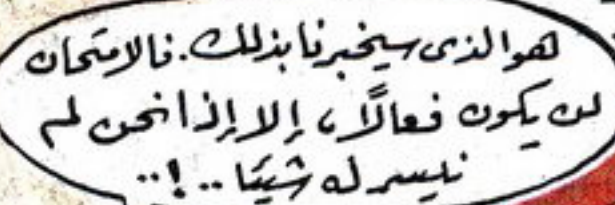 هو الذى سيخبرنا بذلك. فالامتحان
لن يكون فعالًا، إلا إذا نحن لم
نيسر له شيئا ..!..